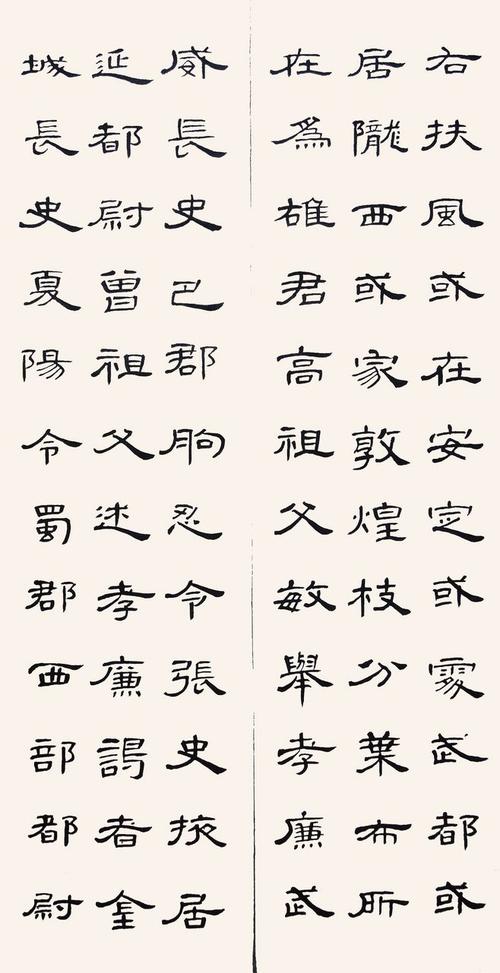 右扶風或在安定或處武都或
居隴西或家敦煌枝分葉布所
在爲雄君高祖父敏舉孝廉武
威長史巴郡朐忍令張史掖居
延都尉曾祖父述孝廉謁者金
城長史夏陽令蜀郡西部都尉